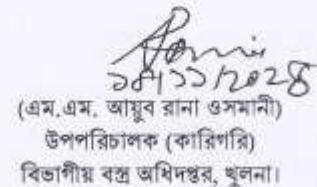 ১৪/১১/২০২৪
(এম.এম. আয়ুব রানা ওসমানী)
উপপরিচালক (কারিগরি)
বিভাগীয় বস্ত্র অধিদপ্তর, খুলনা।